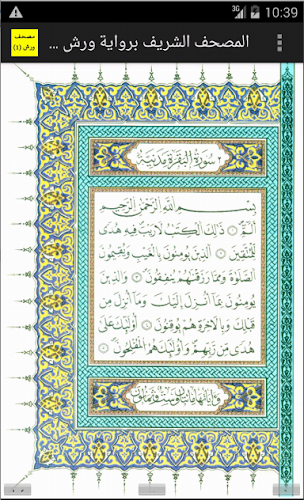 3G 10:39
المصحف الشريف برواية ورش ...
مصحف
ورش (1)
٢ سورة البقرة مدنية
بِسْمِ اللَّهِ الرَّحْمَٰنِ الرَّحِيمِ
أَلَمِّ ذَٰلِكَ الْكِتَٰبُ لَا رَيْبَ فِيهِ هُدًى
لِّلْمُتَّقِينَ الَّذِينَ يُومِنُونَ بِالْغَيْبِ وَيُقِيمُونَ
الصَّلَوٰةَ وَمِمَّا رَزَقْنَٰهُمْ يُنفِقُونَ وَالَّذِينَ
يُومِنُونَ بِمَا أُنزِلَ إِلَيْكَ وَمَا أُنزِلَ مِن
قَبْلِكَ وَبِالَاخِرَةِ هُمْ يُوقِنُونَ أُوْلَٰئِكَ عَلَىٰ
هُدًى مِّن رَّبِّهِمْ وَأُوْلَٰئِكَ هُمُ الْمُفْلِحُونَ
وآياتها مايتان وست وثمانون